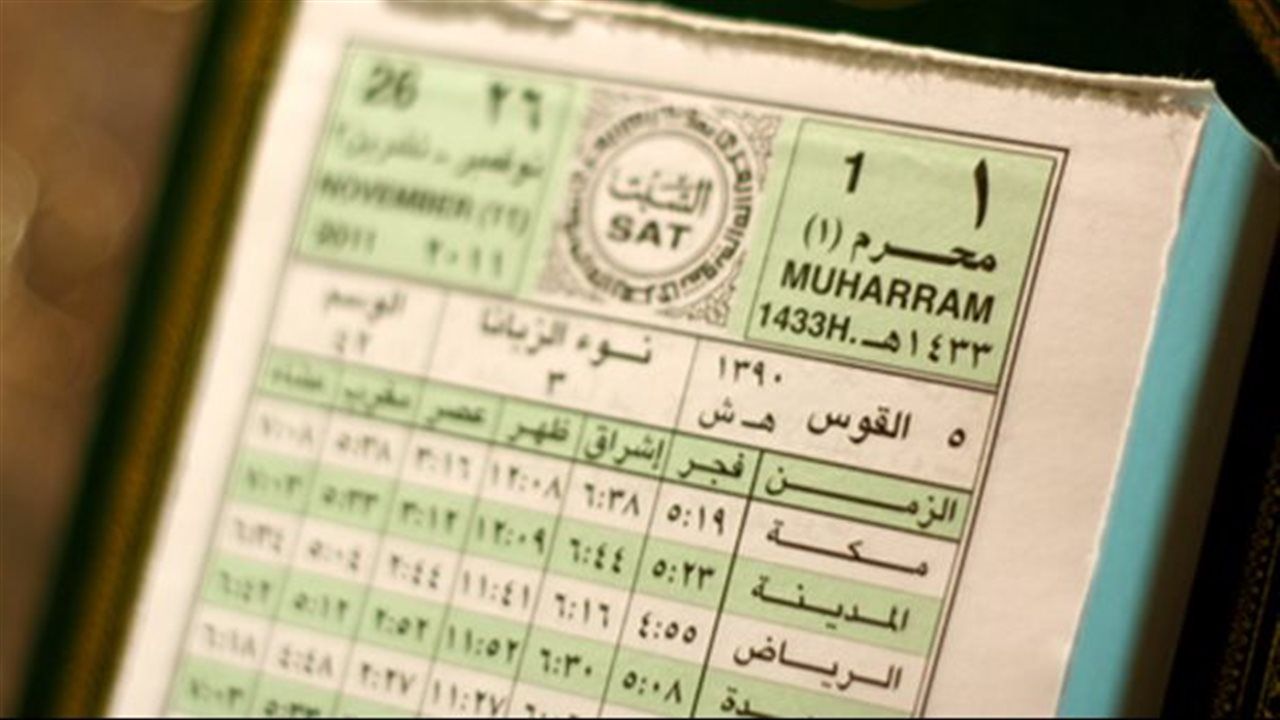 ١ 1
محرم (١)
MUHARRAM
١٤٣٣هـ 1433H.
السبت
SAT
26 ٢٦
نوفمبر - تشرين٢
NOVEMBER (11)
2011 ٢٠١١
٥ القوس ١٣٩٠ هـ ش
نوء الزبانا
٣
الوسم
٤٢
الزمن فجر إشراق ظهر عصر مغرب عشاء
مكة ٥:١٩ ٦:٣٨ ١٢:٠٨ ٣:١٦ ٥:٣٨ ٧:٠٨
المدينة ٥:٢٣ ٦:٤٤ ١٢:٠٩ ٣:١٢ ٥:٣٣ ٧:٠٣
الرياض ٤:٥٥ ٦:١٦ ١١:٤١ ٢:٤٤ ٥:٠٤ ٦:٣٤
٥:٠٨ ٦:٣٠ ١١:٥٢ ٢:٥٢ ٥:١٢ ٦:٤٢
١١:٢٧ ٢:٢٧ ٤:٤٨ ٦:١٨
٥:٣٣ ٧:٠٣